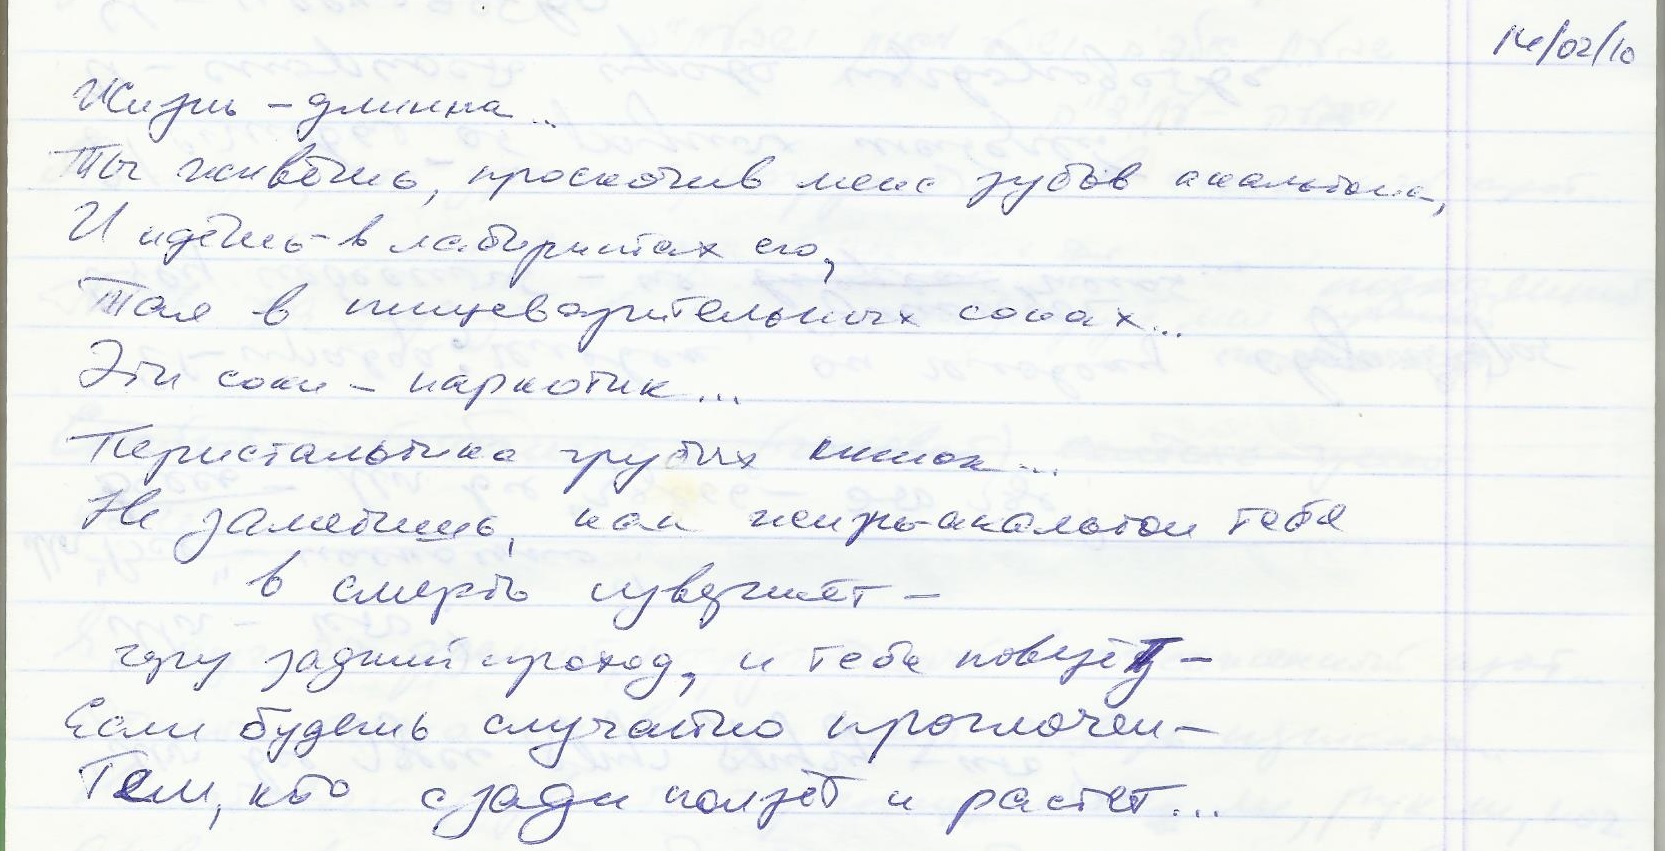 14/02/10
Жизнь – длинна...
Ты живёшь, проскочив меж зубов анальгона,
И идёшь в лабиринтах его,
Тая в пищеварительных соках...
Эти соки – наркотик...
Перистальтика грубых кишок...
Не заметишь, как жизнь-анальгон тебя
в смерть извергнет –
через задний проход, и тебе повезёт –
Если будешь случайно проглочен –
Тем, кто сзади ползёт и растёт...